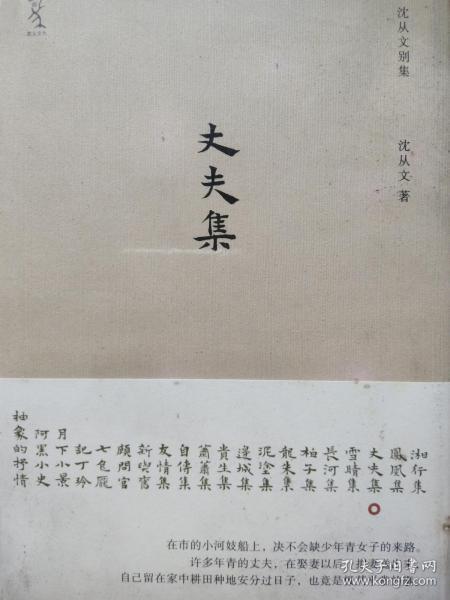 沈从文别集
沈从文 著
丈夫集
湘行集
鳳凰集
丈夫集
雪晴集
長河集
柏子集
龍朱集
泥塗集
邊城集
貴生集
蕭蕭集
自傳集
友情集
新與舊
顧問官
七色魘
記丁玲
月下小景
阿黑小史
抽象的抒情
在市的小河妓船上，决不会缺少年青女子的来路。
许多年青的丈夫，在娶妻以后，把妻
自己留在家中耕田种地安分过日子，也竟是
孔夫子旧书网